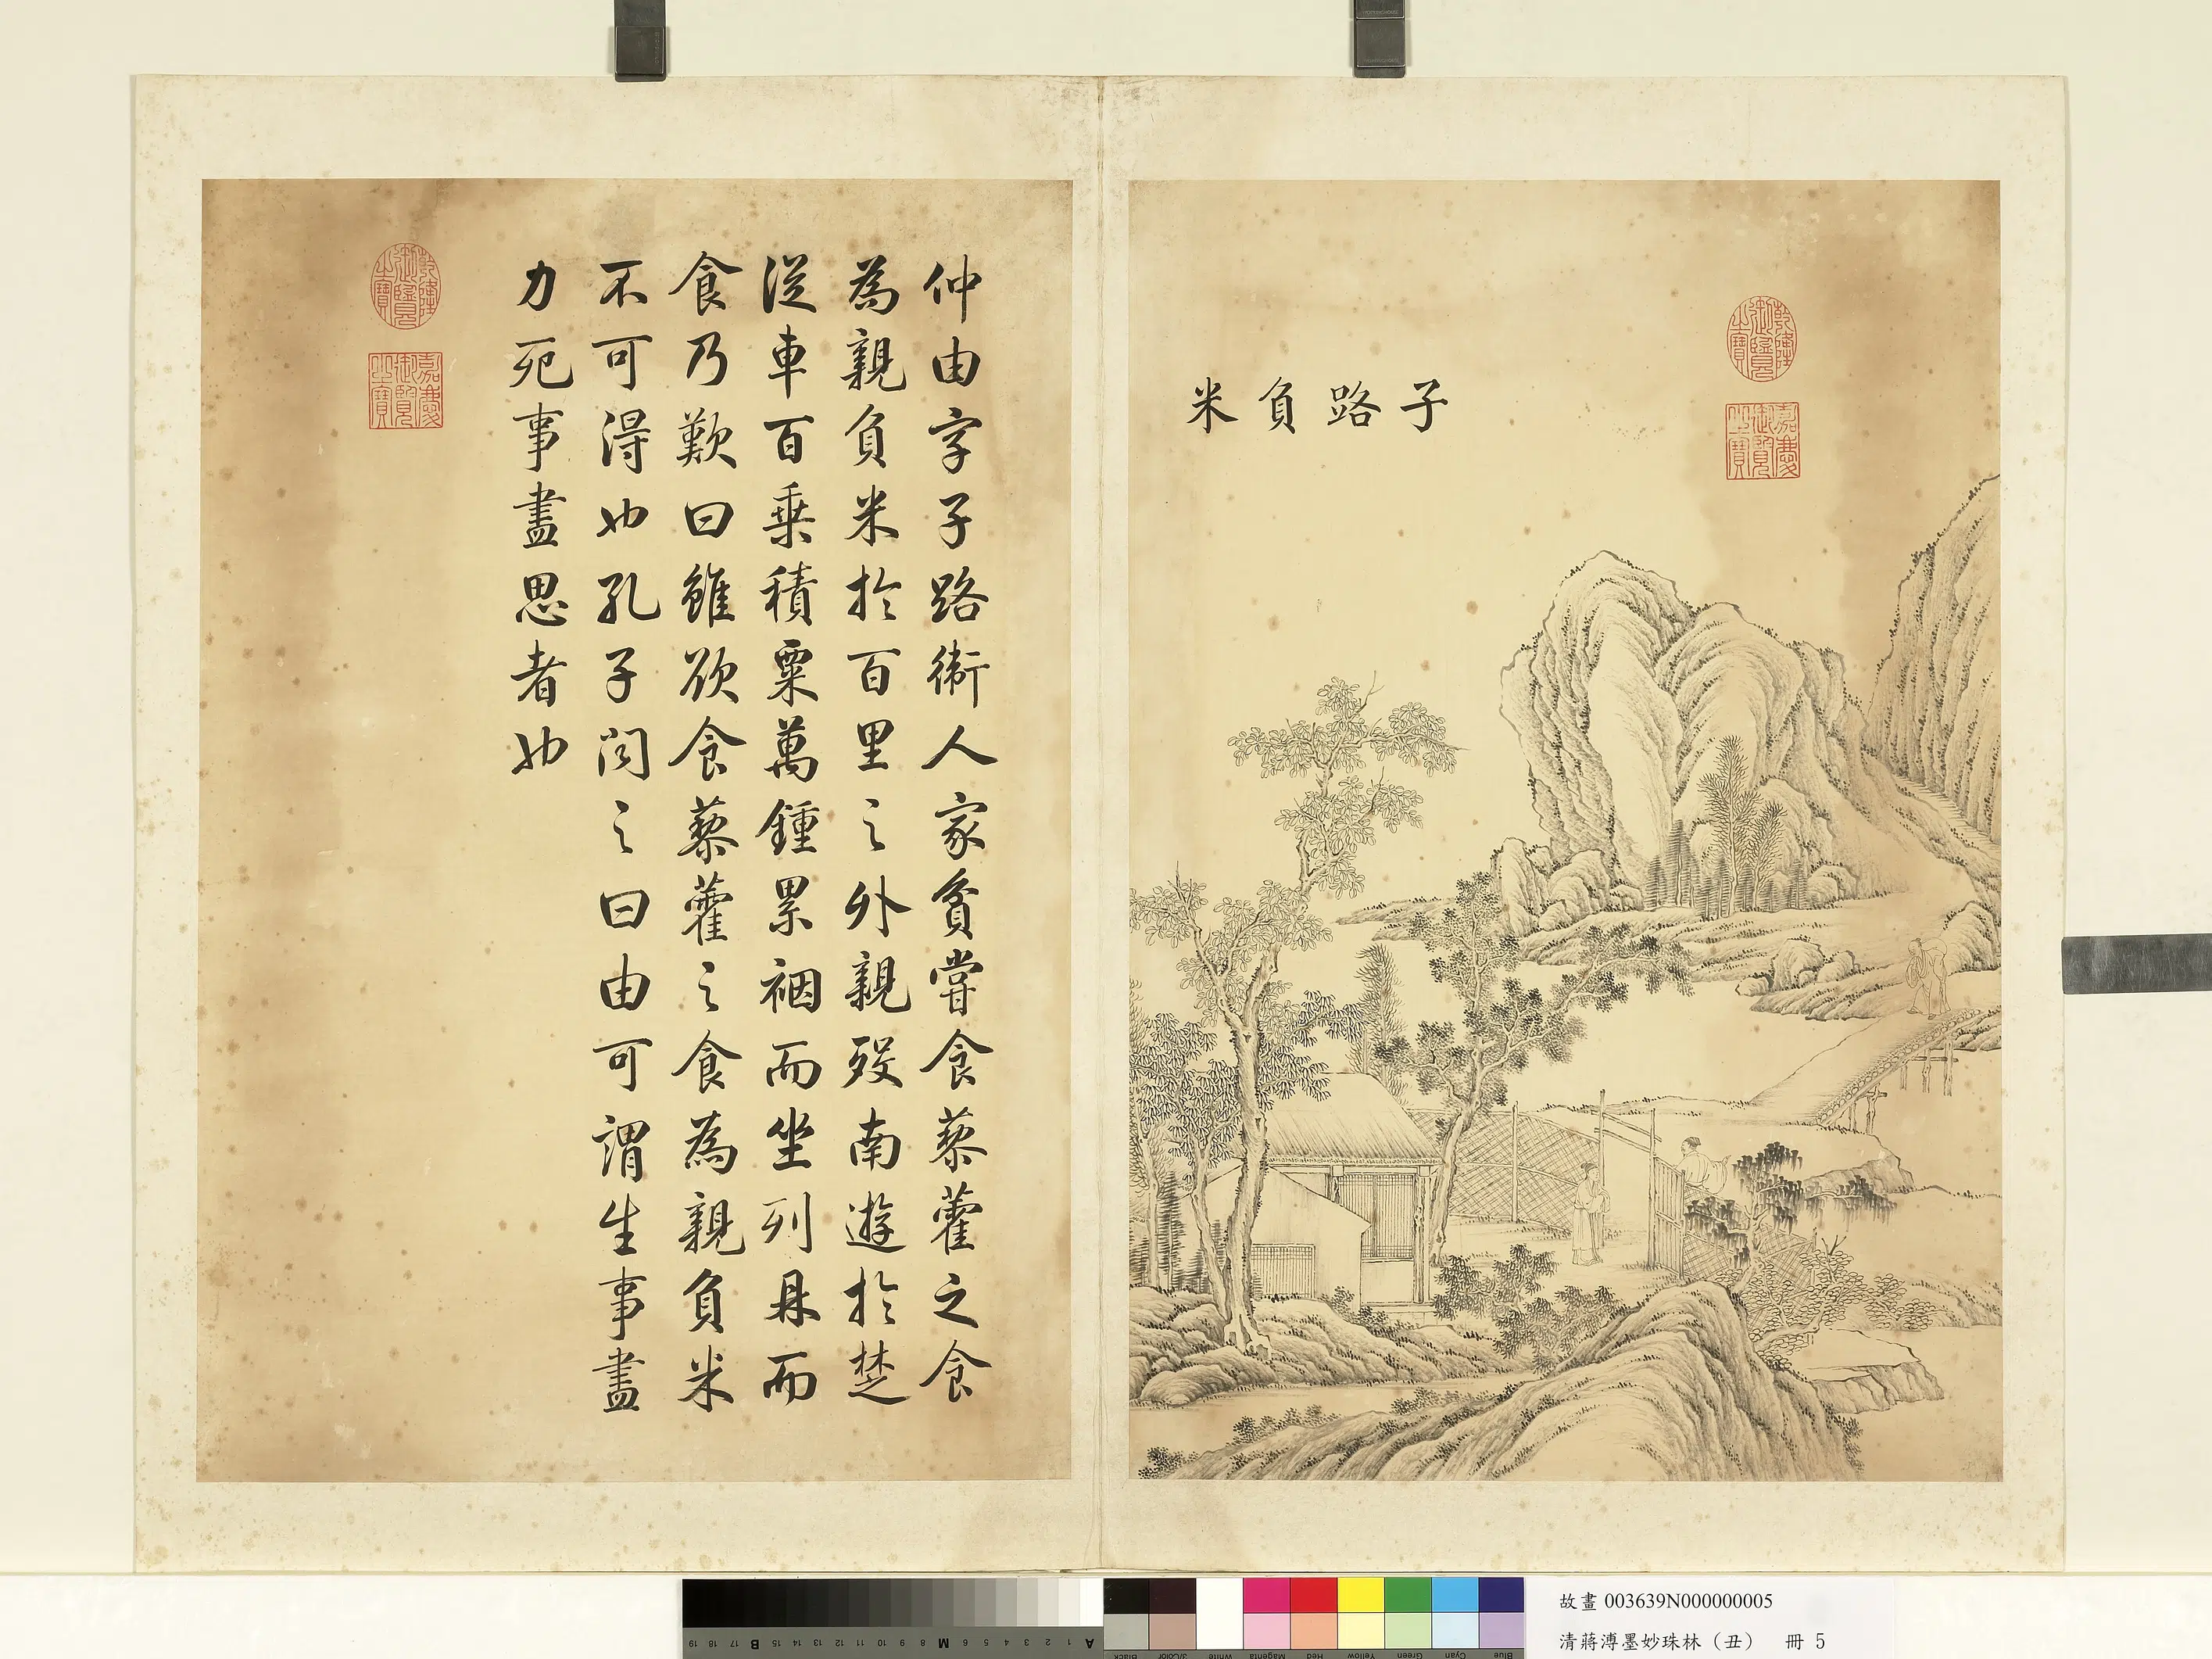 子路負米
乾隆御覽之寶
嘉慶御覽之寶
仲由字子路衛人家貧嘗食藜藿之食
為親負米於百里之外親歿南遊於楚
從車百乗積粟萬鍾累裀而坐列鼎而
食乃歎曰雖欲食藜藿之食為親負米
不可得也孔子聞之曰由可謂生事盡
力死事盡思者也
乾隆御覽之寶
嘉慶御覽之寶
故畫 003639N000000005
清蔣溥墨妙珠林（丑） 冊 5
19 18 17 16 15 B 14 13 12 11 10 9 8 7 M 6 5 4 3 2 1 A
Black 3/Color White Magenta Red Yellow Green Cyan Blue